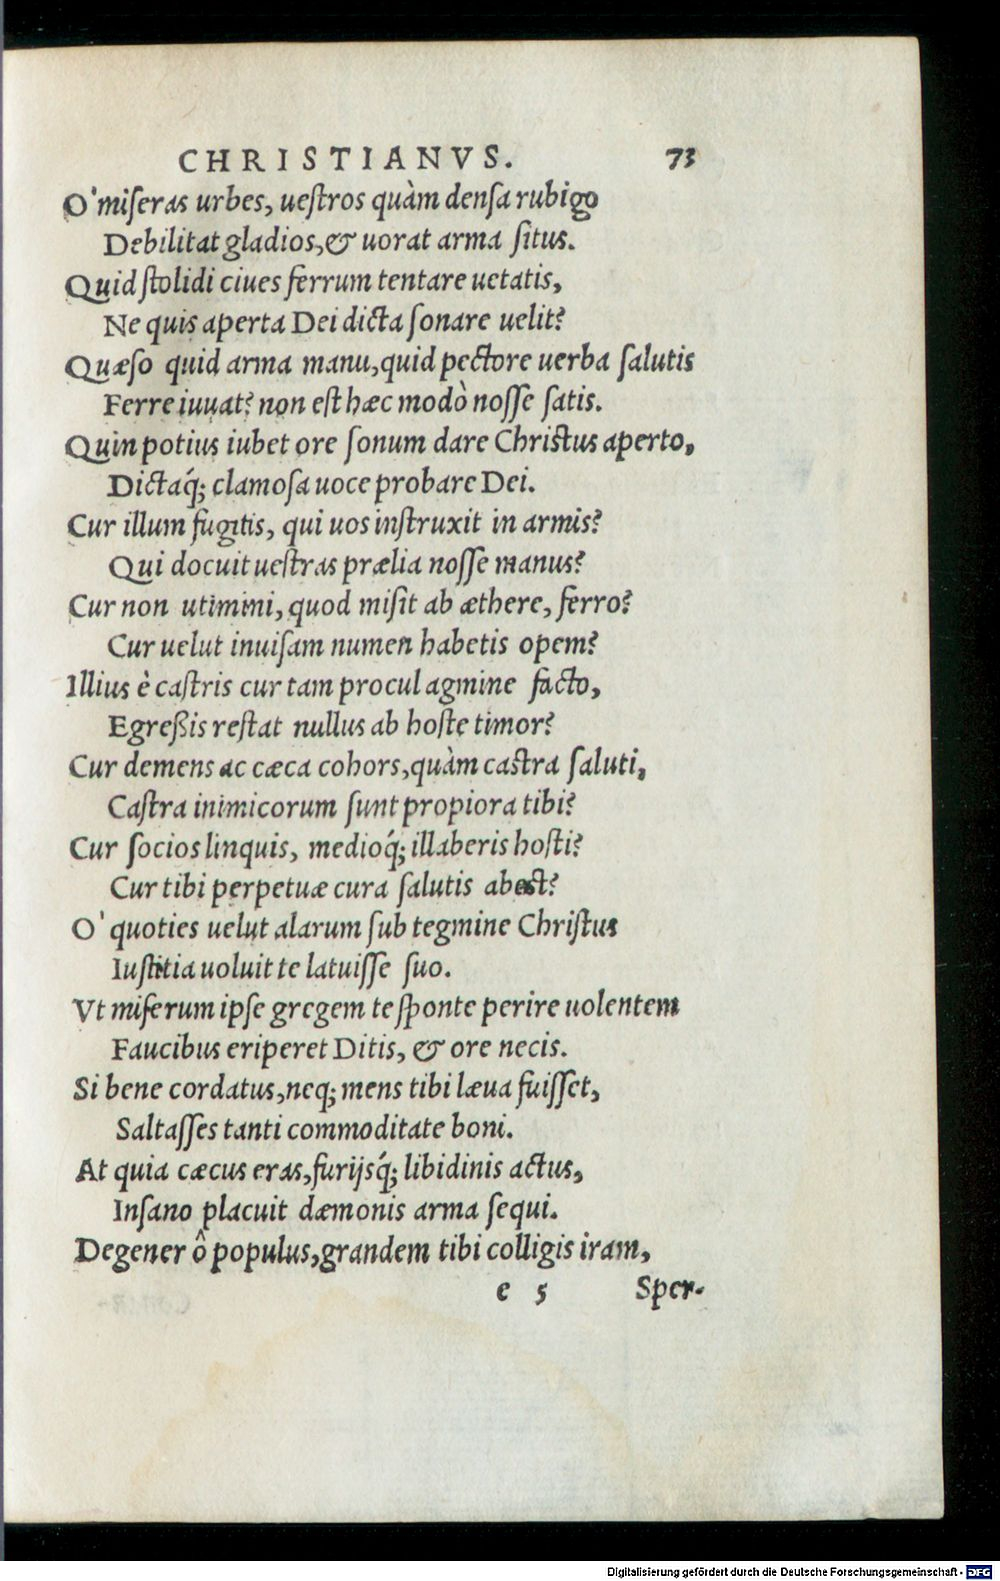 CHRISTIANVS. 73
O' miſeras urbes, ueſtros quàm denſa rubigo
Debilitat gladios, & uorat arma ſitus.
Quid ſtolidi ciues ferrum tentare uetatis,
Ne quis aperta Dei dicta ſonare uelit?
Quæſo quid arma manu, quid pectore uerba ſalutis
Ferre iuuat? non eſt hæc modò noſſe ſatis.
Quin potius iubet ore ſonum dare Chriſtus aperto,
Dictaq́; clamoſa uoce probare Dei.
Cur illum fugitis, qui uos inſtruxit in armis?
Qui docuit ueſtras prælia noſſe manus?
Cur non utimini, quod miſit ab æthere, ferro?
Cur uelut inuiſam numen habetis opem?
Illius è caſtris cur tam procul agmine facto,
Egreßis reſtat nullus ab hoſte timor?
Cur demens ac cæca cohors, quàm caſtra ſaluti,
Caſtra inimicorum ſunt propiora tibi?
Cur ſocios linquis, medioq́; illaberis hoſti?
Cur tibi perpetuæ cura ſalutis abeſt?
O' quoties uelut alarum ſub tegmine Chriſtus
Iuſtitia uoluit te latuiſſe ſuo.
Vt miſerum ipſe gregem te ſponte perire uolentem
Faucibus eriperet Ditis, & ore necis.
Si bene cordatus, neq; mens tibi læua fuiſſet,
Saltaſſes tanti commoditate boni.
At quia cæcus eras, furijsq́; libidinis actus,
Inſano placuit dæmonis arma ſequi.
Degener ô populus, grandem tibi colligis iram,
e 5 Sper-
Digitalisierung gefördert durch die Deutsche Forschungsgemeinschaft - DFG